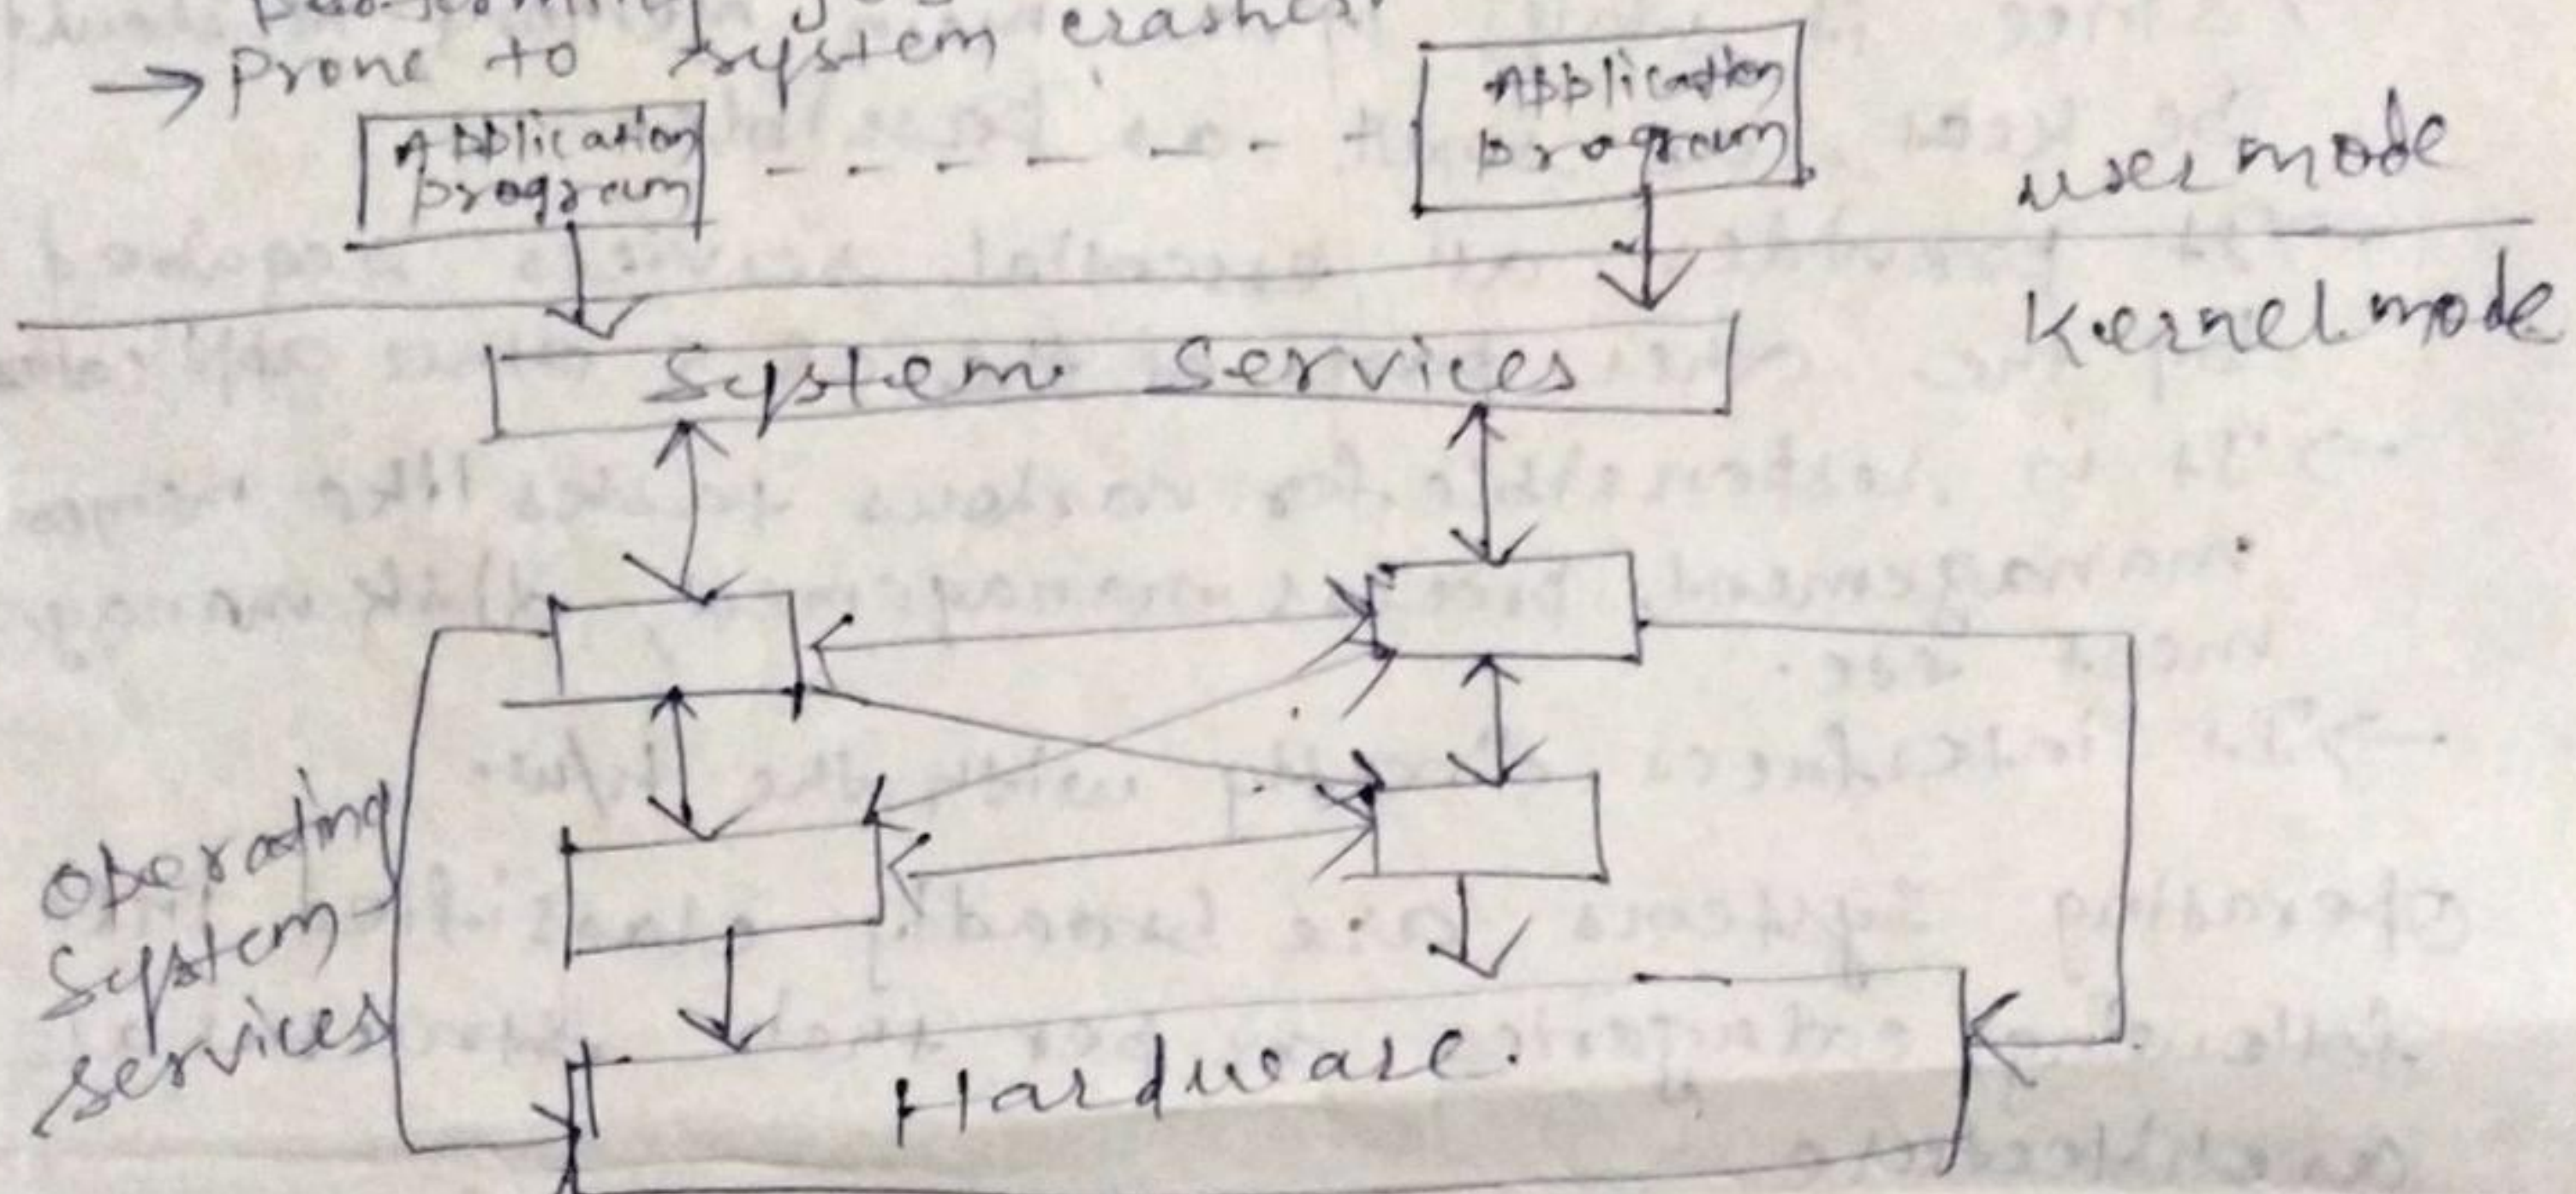 → Prone to system crashes.
Application
program
- - - - - - -
Application
program
user mode
Kernel mode
System Services
Operating
System
Services
Hardware.